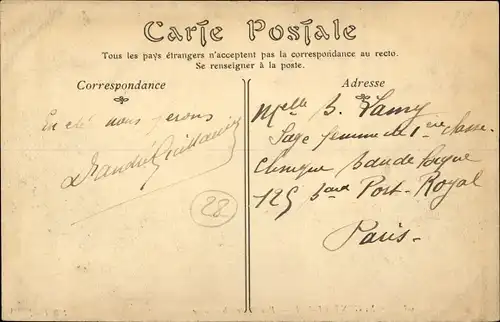 Carte Postale
Tous les pays étrangers n'acceptent pas la correspondance au recto.
Se renseigner à la poste.
Correspondance
Adresse
En été nous ferons
André Guillaumin
28
Melle B. Lamy
Sage femme de 1ère classe.
Clinique Baudelocque
125 Bard Port-Royal
Paris-